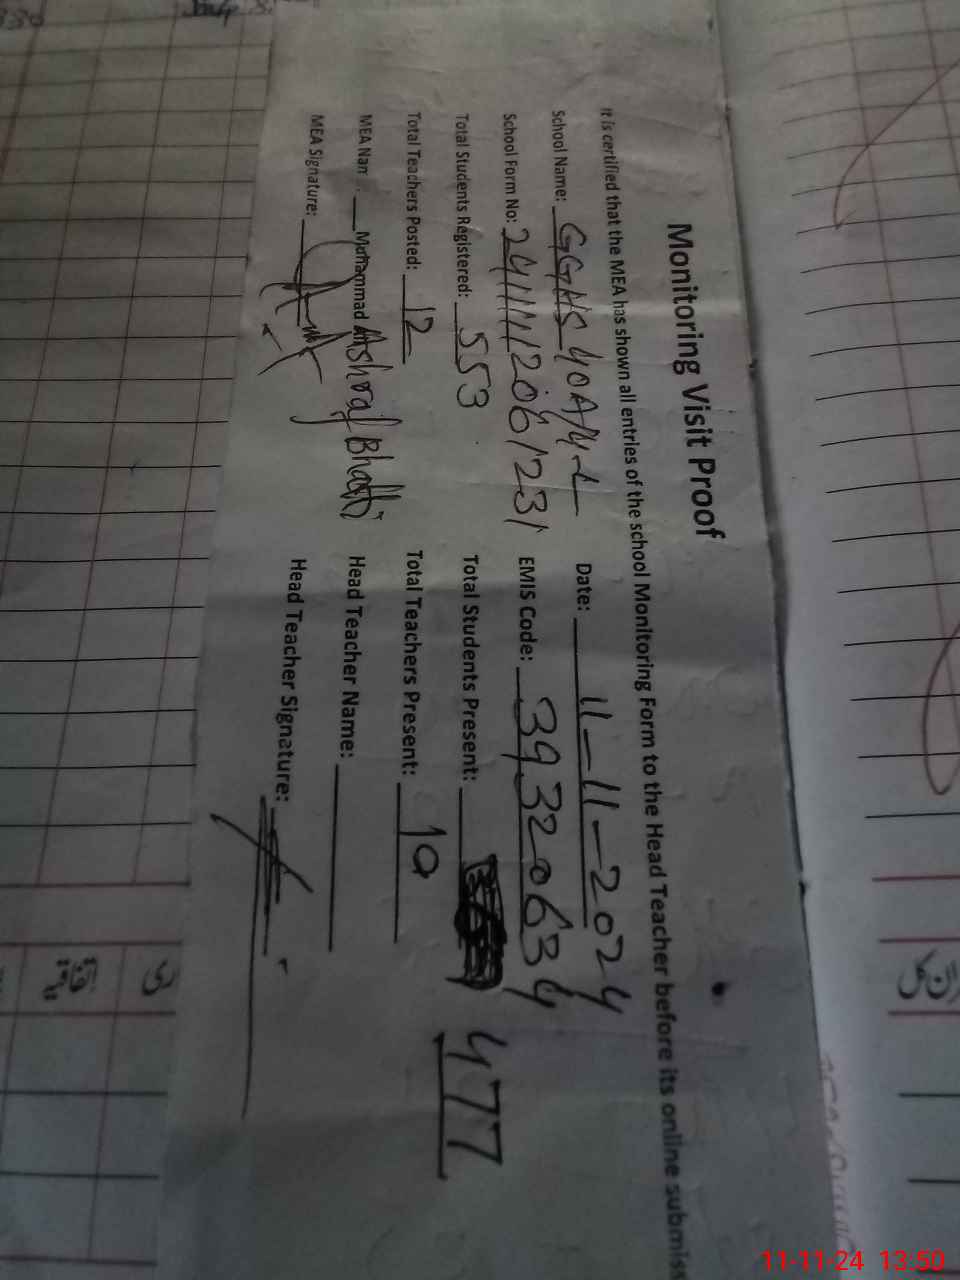 Monitoring Visit Proof
It is certified that the MEA has shown all entries of the school Monitoring Form to the Head Teacher before its online submiss
School Name: GGHS 40A/4-L Date: 11-11-2024
School Form No: 24111112061231 EMIS Code: 39320634
Total Students Registered: 553 Total Students Present: 477
Total Teachers Posted: 12 Total Teachers Present: 10
MEA Nam : Muhammad Ashraf Bhatti Head Teacher Name:
MEA Signature: Head Teacher Signature:
11-11-24 13:50